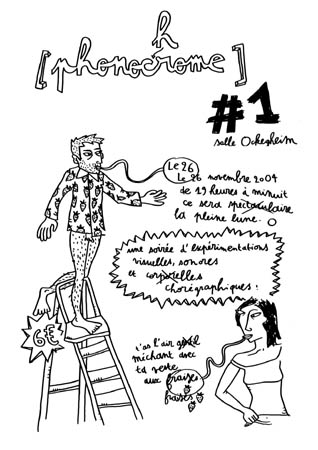 h
[phonocrome]
#1
salle Ockeghem
Le 26
Le 26 novembre 2004
de 19 heures à minuit
ce sera spectaculaire
la pleine lune.
une soirée d'expérimentations
visuelles, sonores
et corporelles
chorégraphiques !
6€
t'as l'air
michant avec
ta veste
aux fraises
fraises